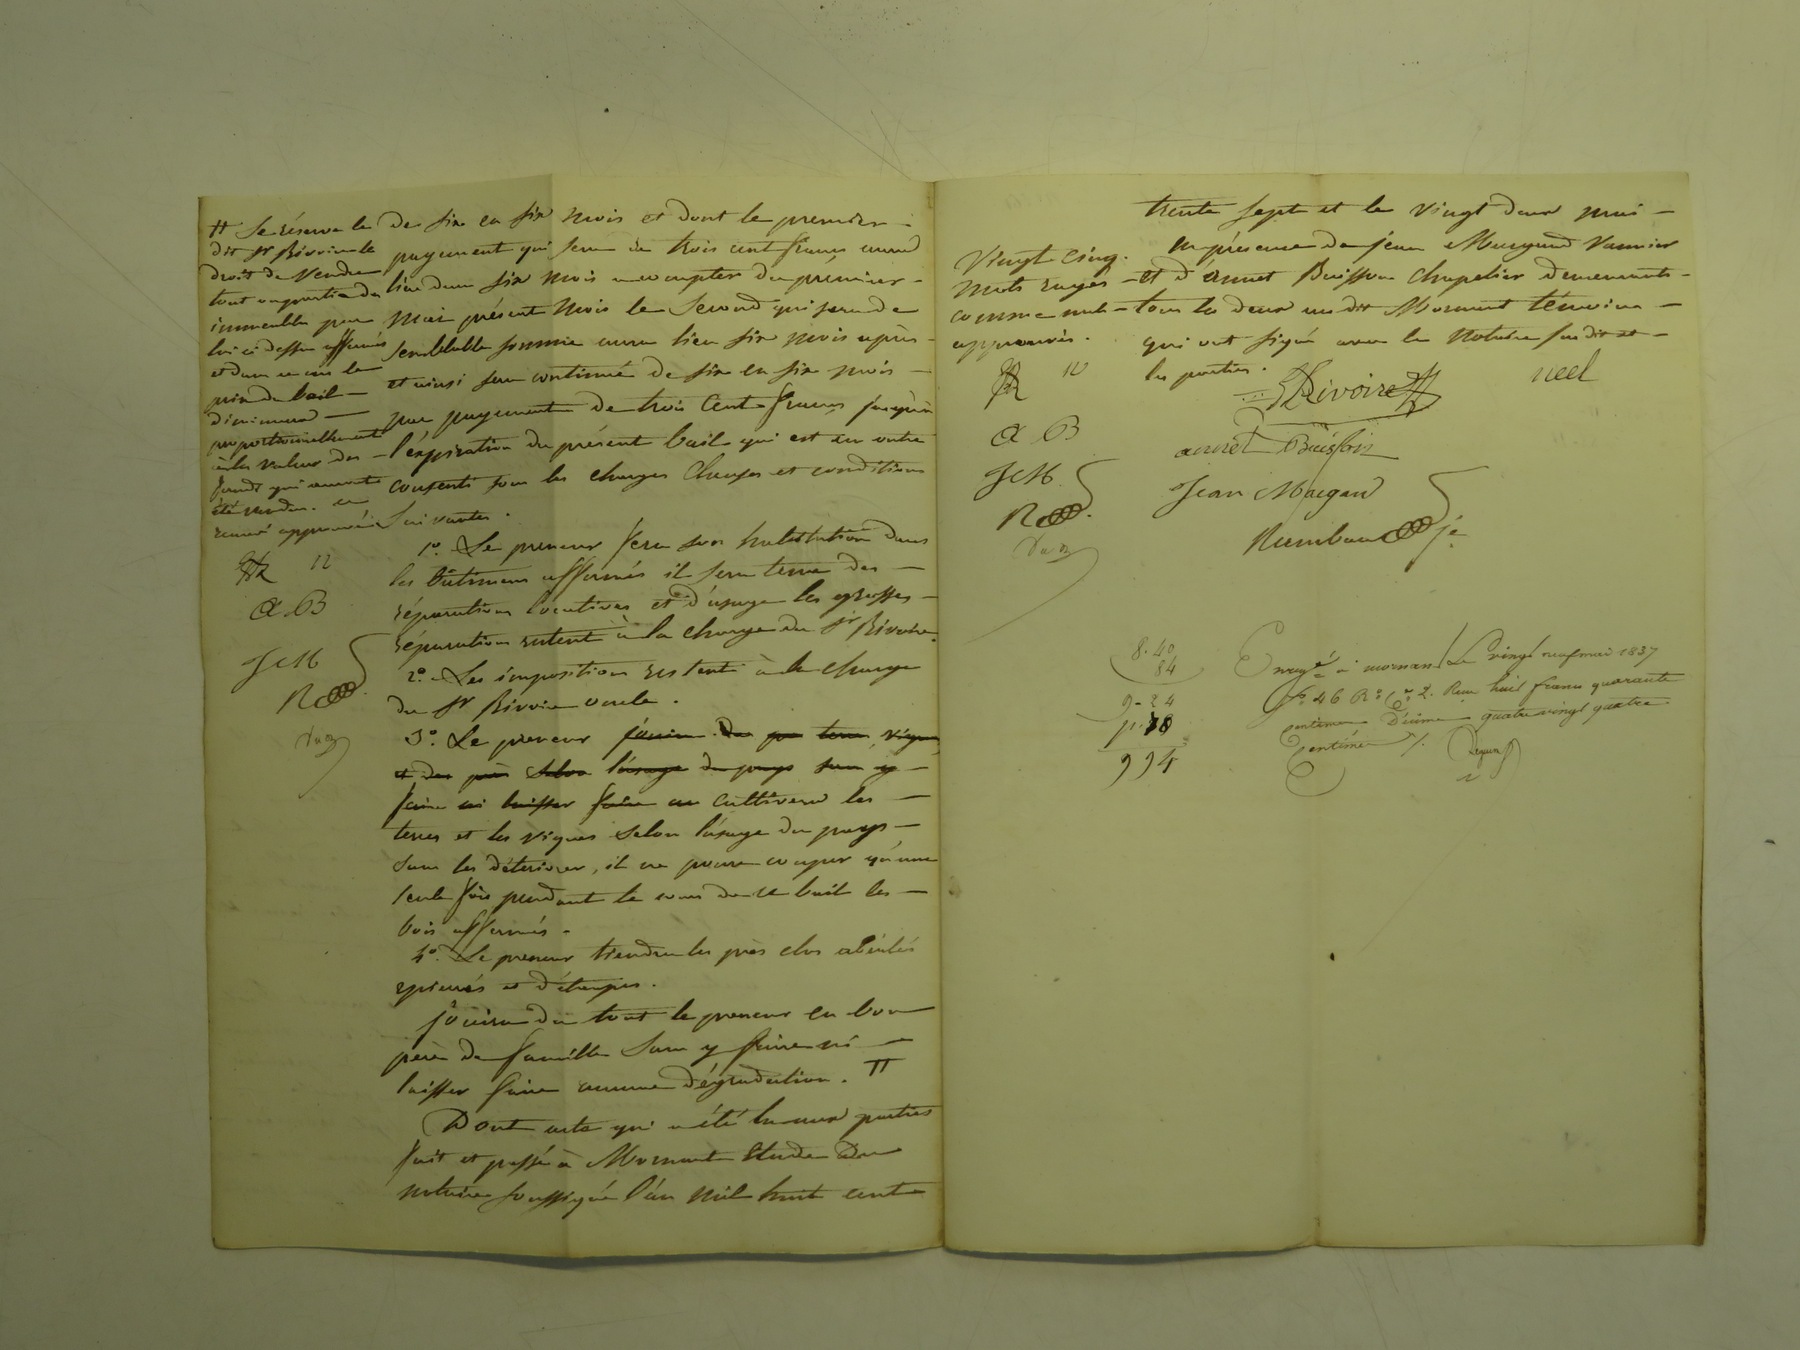 de six en six mois et dont le premier
payement qui sera de trois cent francs aura
lieu dans six mois a compter du premier
mai présent mois le second qui sera de
semblable somme aura lieu six mois après
et ainsi sera continué de six en six mois
par payements de trois cent francs jusqu'à
l'expiration du présent bail qui est en outre
consenti sous les charges clauses et conditions
suivantes.
1º. Le preneur fera son habitation dans
les bâtimens affermés il sera tenu des
réparations locatives et d'usage les grosses
réparations restent à la charge du Sr Rivoire.
2º. Les impositions restent à la charge
du Sr Rivoire
3º. Le preneur jouira des terres, vignes
et des près selon l'usage du pays sans y
faire ni laisser faire cultivera les
terres et les vignes selon l'usage du pays
sans les détériorer, il ne pourra couper qu'une
seule fois pendant le cours de ce bail les
bois affermés.
4º. Le preneur tiendra les près clos
et d'étaupés.
Jouira du tout le preneur en bon
père de famille sans y faire ni
laisser faire aucune dégradation. #
Dont acte qui a été lu aux parties
fait et passé à Mornant Etude du
notaire soussigné l'an mil huit cent
# Se réserve le
dit Sr Rivoire le
droit de vendre
tout ou partie des
immeubles par
lui ci dessus affermés
et dans ce cas le
prix du bail
diminuera
proportionnellement
à la valeur des
fonds qui auront
été vendus.
renvoi approuvé
A. B
JcM
R
trente sept et le vingt deux mai
En présence de Jean Margand
et d'annet Buisson chapelier demeurants
tous les deux au dit Mornant témoins
qui ont signé avec le Notaire susdit et
les parties.
Vingt cinq
mots rayés
comme nuls
approuvés.
A B
JcM
R
Rivoire
neel
annet Buisson
Jean Margand
8.40
84
9-24
994
Enregé à mornant Le vingt neuf mai 1837
fº 46 Rº Cº 2. Reçu huit francs quarante
centimes Décime quatre vingt quatre
Centimes